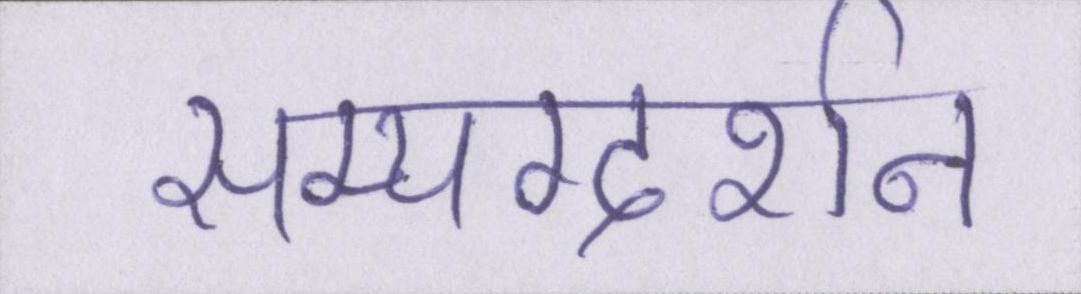 सम्यग्दर्शन